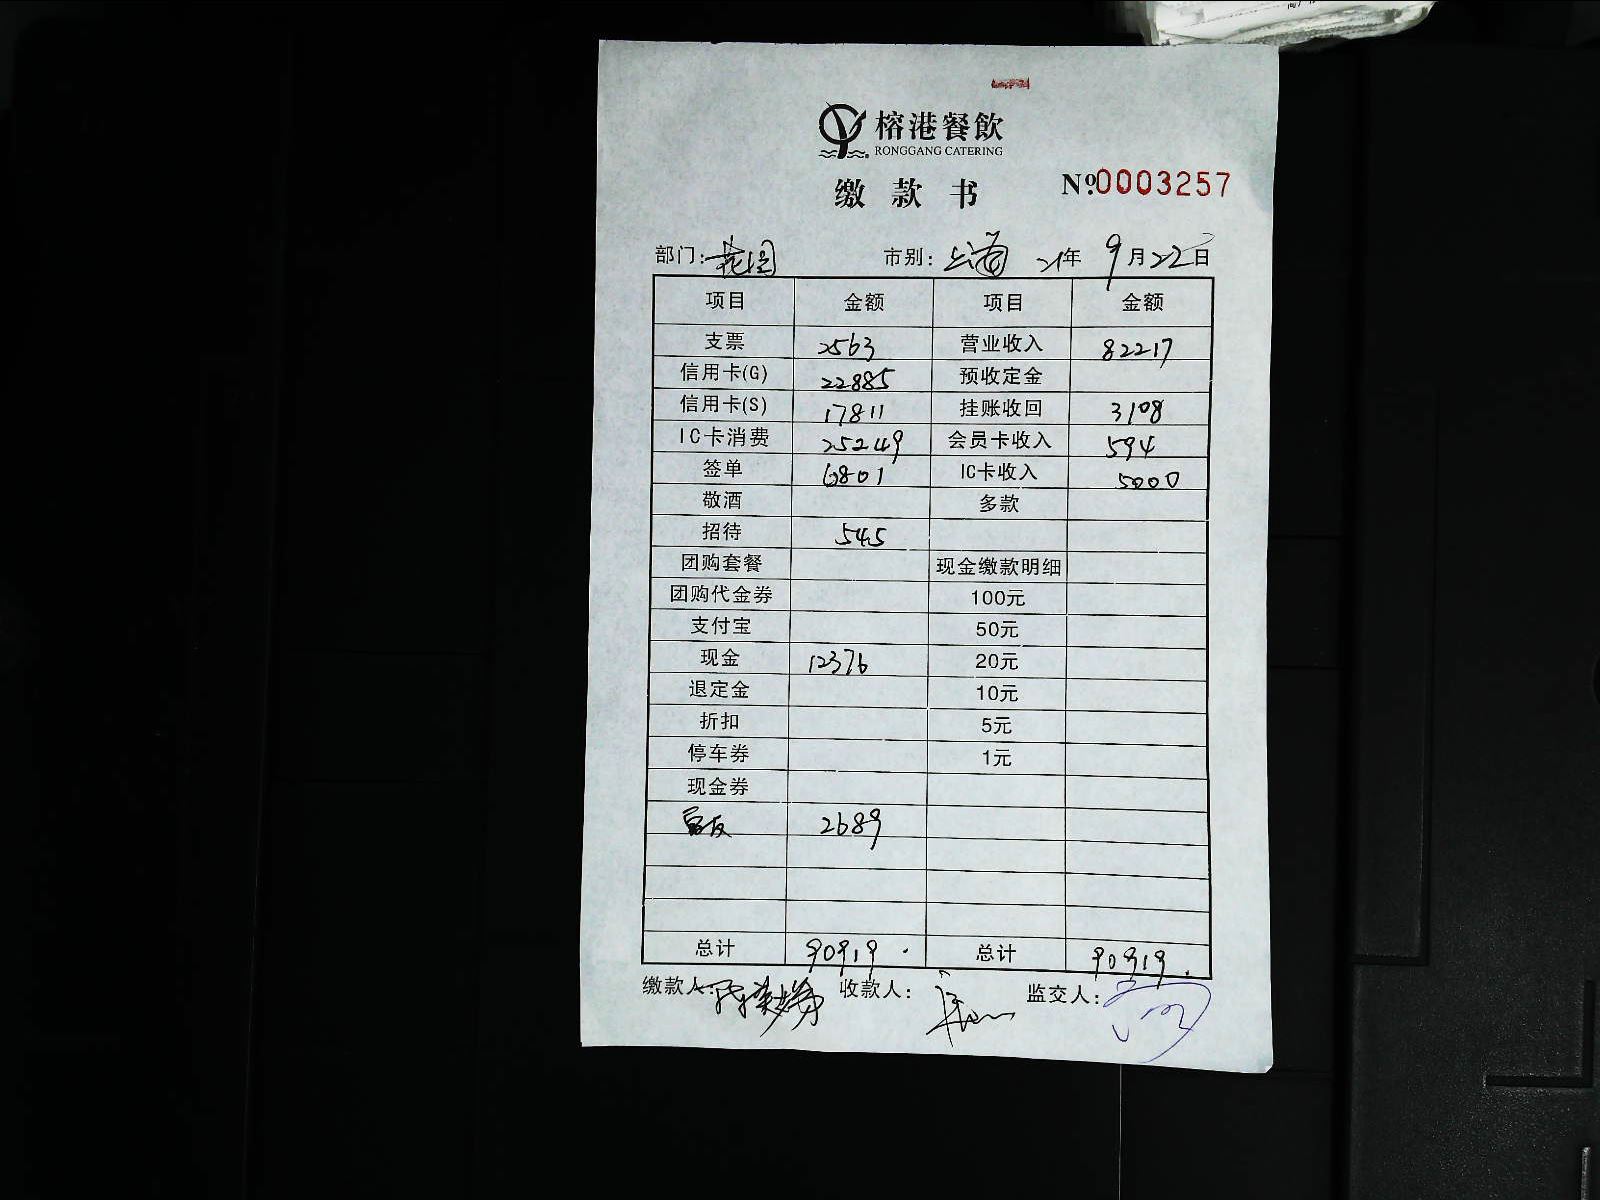 榕港餐飲
RONGGANG CATERING
缴款书 №0003257
部门: 花园 市别: 上海 21年9月22日
项目 金额 项目 金额
支票 2563 营业收入 82217
信用卡(G) 22885 预收定金
信用卡(S) 17811 挂账收回 3108
IC卡消费 25249 会员卡收入 594
签单 6801 IC卡收入 5000
敬酒 多款
招待 545
团购套餐 现金缴款明细
团购代金券 100元
支付宝 50元
现金 12376 20元
退定金 10元
折扣 5元
停车券 1元
现金券
2689
总计 90919. 总计 90919.
缴款人: 收款人: 监交人: